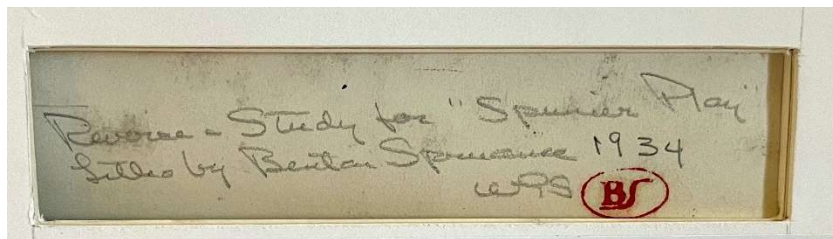 Reverse - Study for "Spinner Play"
Litho by Benton Spruance 1934
WRS BS